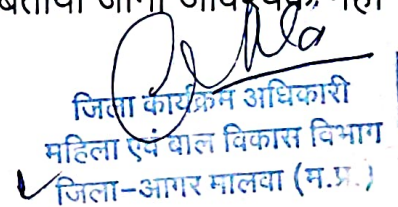 बताया जाना आवश्यक नहीं
जिला कार्यक्रम अधिकारी
महिला एवं बाल विकास विभाग
जिला-आगर मालवा (म.प्र.)